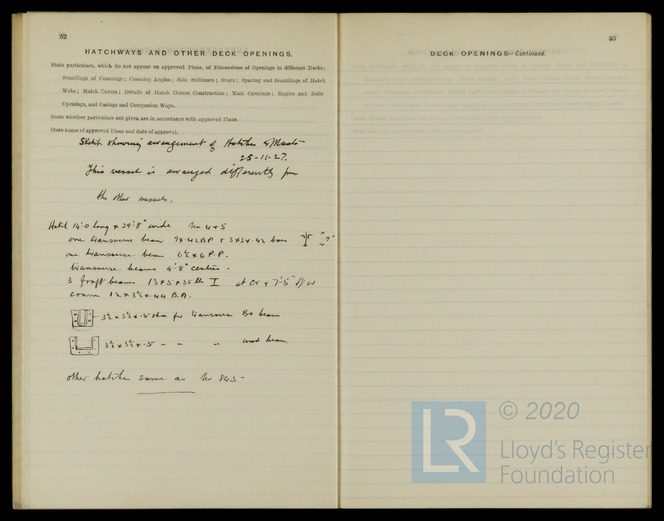 52
HATCHWAYS AND OTHER DECK OPENINGS.
State particulars, which do not appear on approved Plans, of Dimensions of Openings in different Decks;
Scantlings of Coamings; Coaming Angles; Side Stiffeners; Stays; Spacing and Scantlings of Hatch
Webs; Hatch Covers; Details of Hatch Corner Construction; Mast Openings; Engine and Boiler
Openings, and Casings and Companion Ways.
State whether particulars not given are in accordance with approved Plans.
State name of approved Plans and date of approval.
Sketch showing arrangement of Hatches & Masts
25-11-27.
This vessel is arranged differently from
the other vessels.
Hatch 14'-0 long x 29'-8" wide No 4+5
one transverse beam 9x.42 BP + 3x3x.42 bars 9"
one transverse beam 6½x6 P.P.
transverse beams 4'-8" centres.
3 beams 13x5x35 lbs I at Cr + 7'-5"
12x3½x.44 B.A.
3½x3½x.5 shoe for transverse beam
3½x3½x.5 " " " wood beam
other hatches same as No 845
53
DECK OPENINGS—Continued.
LR
© 2020
Lloyd's Register
Foundation